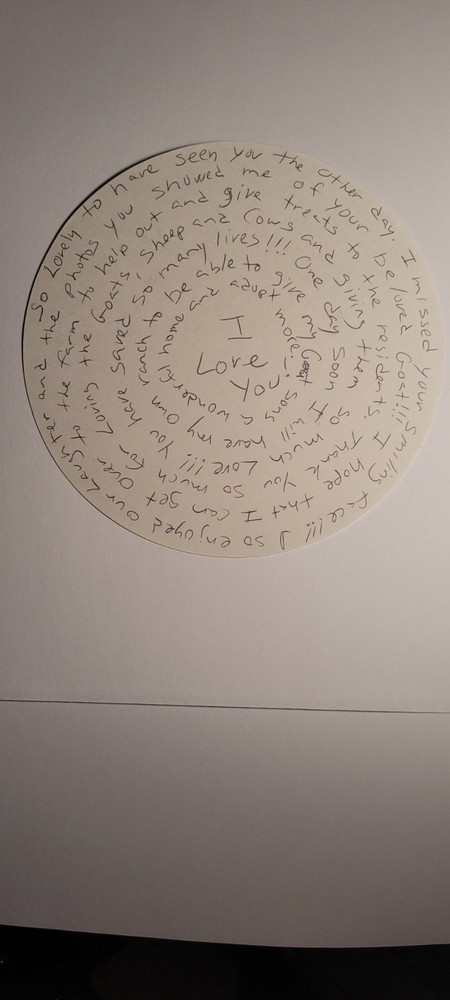 So Lovely to have seen you the other day. I missed your smiling face!!! I so enjoyed our Laughter and the photos you showed me of your beloved Goat!!! I hope that I can get over to the farm to help out and give treats to the residents. Thank you so much for Loving the Goats, Sheep and Cows and giving them so much Love!!! You have saved so many lives!!! One day soon I will have my own ranch to be able to give my Goat sons a wonderful home and adopt more...
I
Love
You